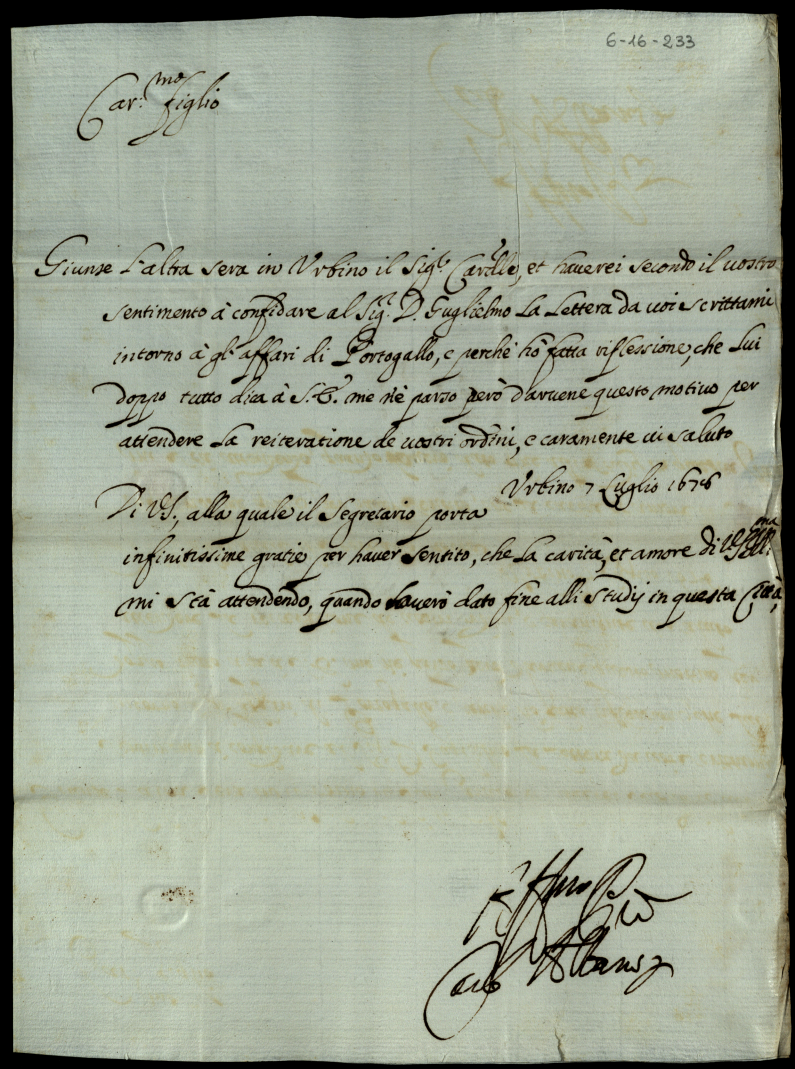 6-16-233
Car:mo figlio
Giunse l'altra sera in Urbino il Sigr. et haverei secondo il vostro
sentimento à confidare al Sigr. D. Guglielmo la lettera da voi scrittami
intorno à gl'affari di Portogallo, e perche hò fatta riflessione, che lui
doppo tutto dica à S.E. me n'è parso però darvene questo motivo per
attendere la reiteratione de vostri ordini, e caramente vi saluto
Urbino 7 Luglio 1676
Di VS., alla quale il Segretario porta
infinitissime gratie per haver sentito, che la carità, et amore di
mi stà attendendo, quando haverò dato fine alli studij in questa Città,
Affmo
Carlo Albani